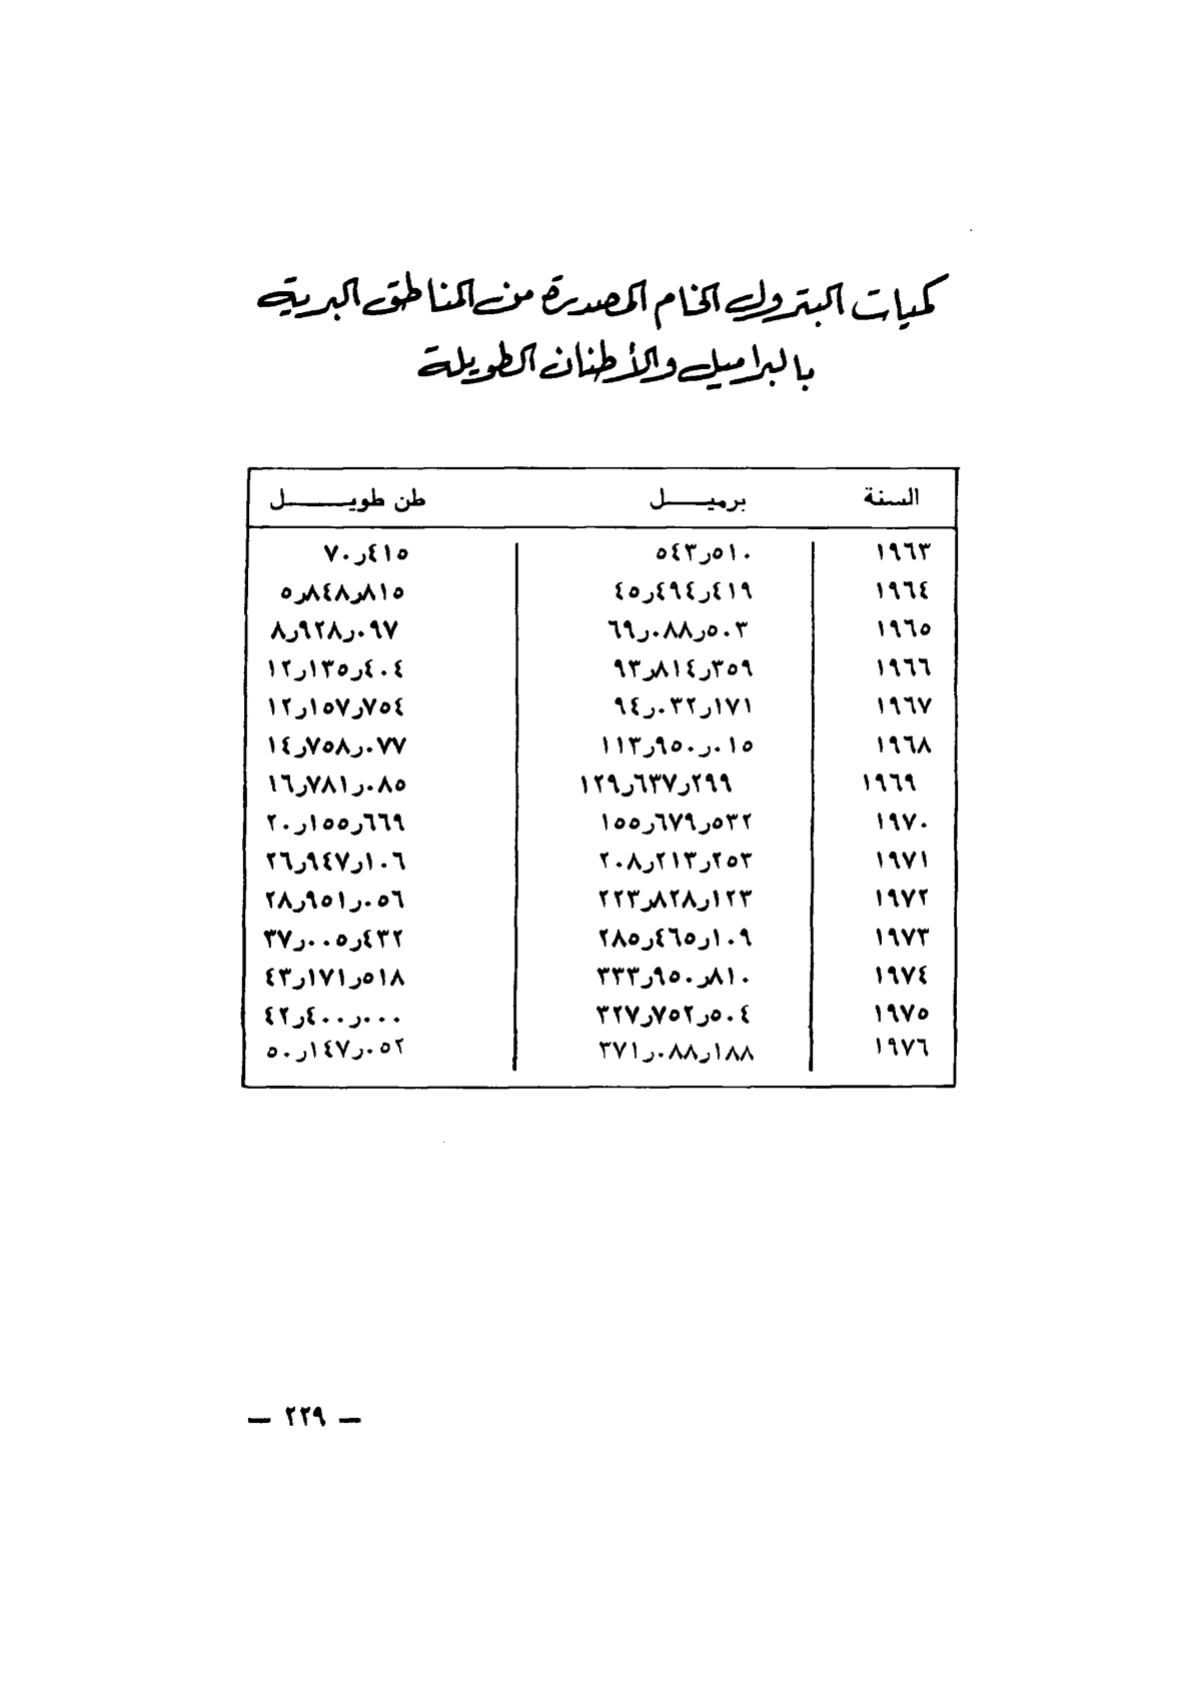 كميات البترول الخام المصدرة من المناطق البرية
بالبراميل والأطنان الطويلة
السنة برميل طن طويل
١٩٦٣ ٥٤٣ر٥١٠ ٧٠ر٤١٥
١٩٦٤ ٤٥ر٤٩٤ر٤١٩ ٥ر٨٤٨ر٨١٥
١٩٦٥ ٦٩ر٠٨٨ر٥٠٣ ٨ر٩٢٨ر٠٩٧
١٩٦٦ ٩٣ر٨١٤ر٣٥٩ ١٢ر١٣٥ر٤٠٤
١٩٦٧ ٩٤ر٠٣٢ر١٧١ ١٢ر١٥٧ر٧٥٤
١٩٦٨ ١١٣ر٩٥٠ر٠١٥ ١٤ر٧٥٨ر٠٧٧
١٩٦٩ ١٢٩ر٦٣٧ر٢٩٩ ١٦ر٧٨١ر٠٨٥
١٩٧٠ ١٥٥ر٦٧٩ر٥٣٢ ٢٠ر١٥٥ر٦٦٩
١٩٧١ ٢٠٨ر٢١٣ر٢٥٣ ٢٦ر٩٤٧ر١٠٦
١٩٧٢ ٢٢٣ر٨٢٨ر١٢٣ ٢٨ر٩٥١ر٠٥٦
١٩٧٣ ٢٨٥ر٤٦٥ر١٠٩ ٣٧ر٠٠٥ر٤٣٢
١٩٧٤ ٣٣٣ر٩٥٠ر٨١٠ ٤٣ر١٧١ر٥١٨
١٩٧٥ ٣٢٧ر٧٥٢ر٥٠٤ ٤٢ر٤٠٠ر٠٠٠
١٩٧٦ ٣٧١ر٠٨٨ر١٨٨ ٥٠ر١٤٧ر٠٥٢
— ٢٢٩ —